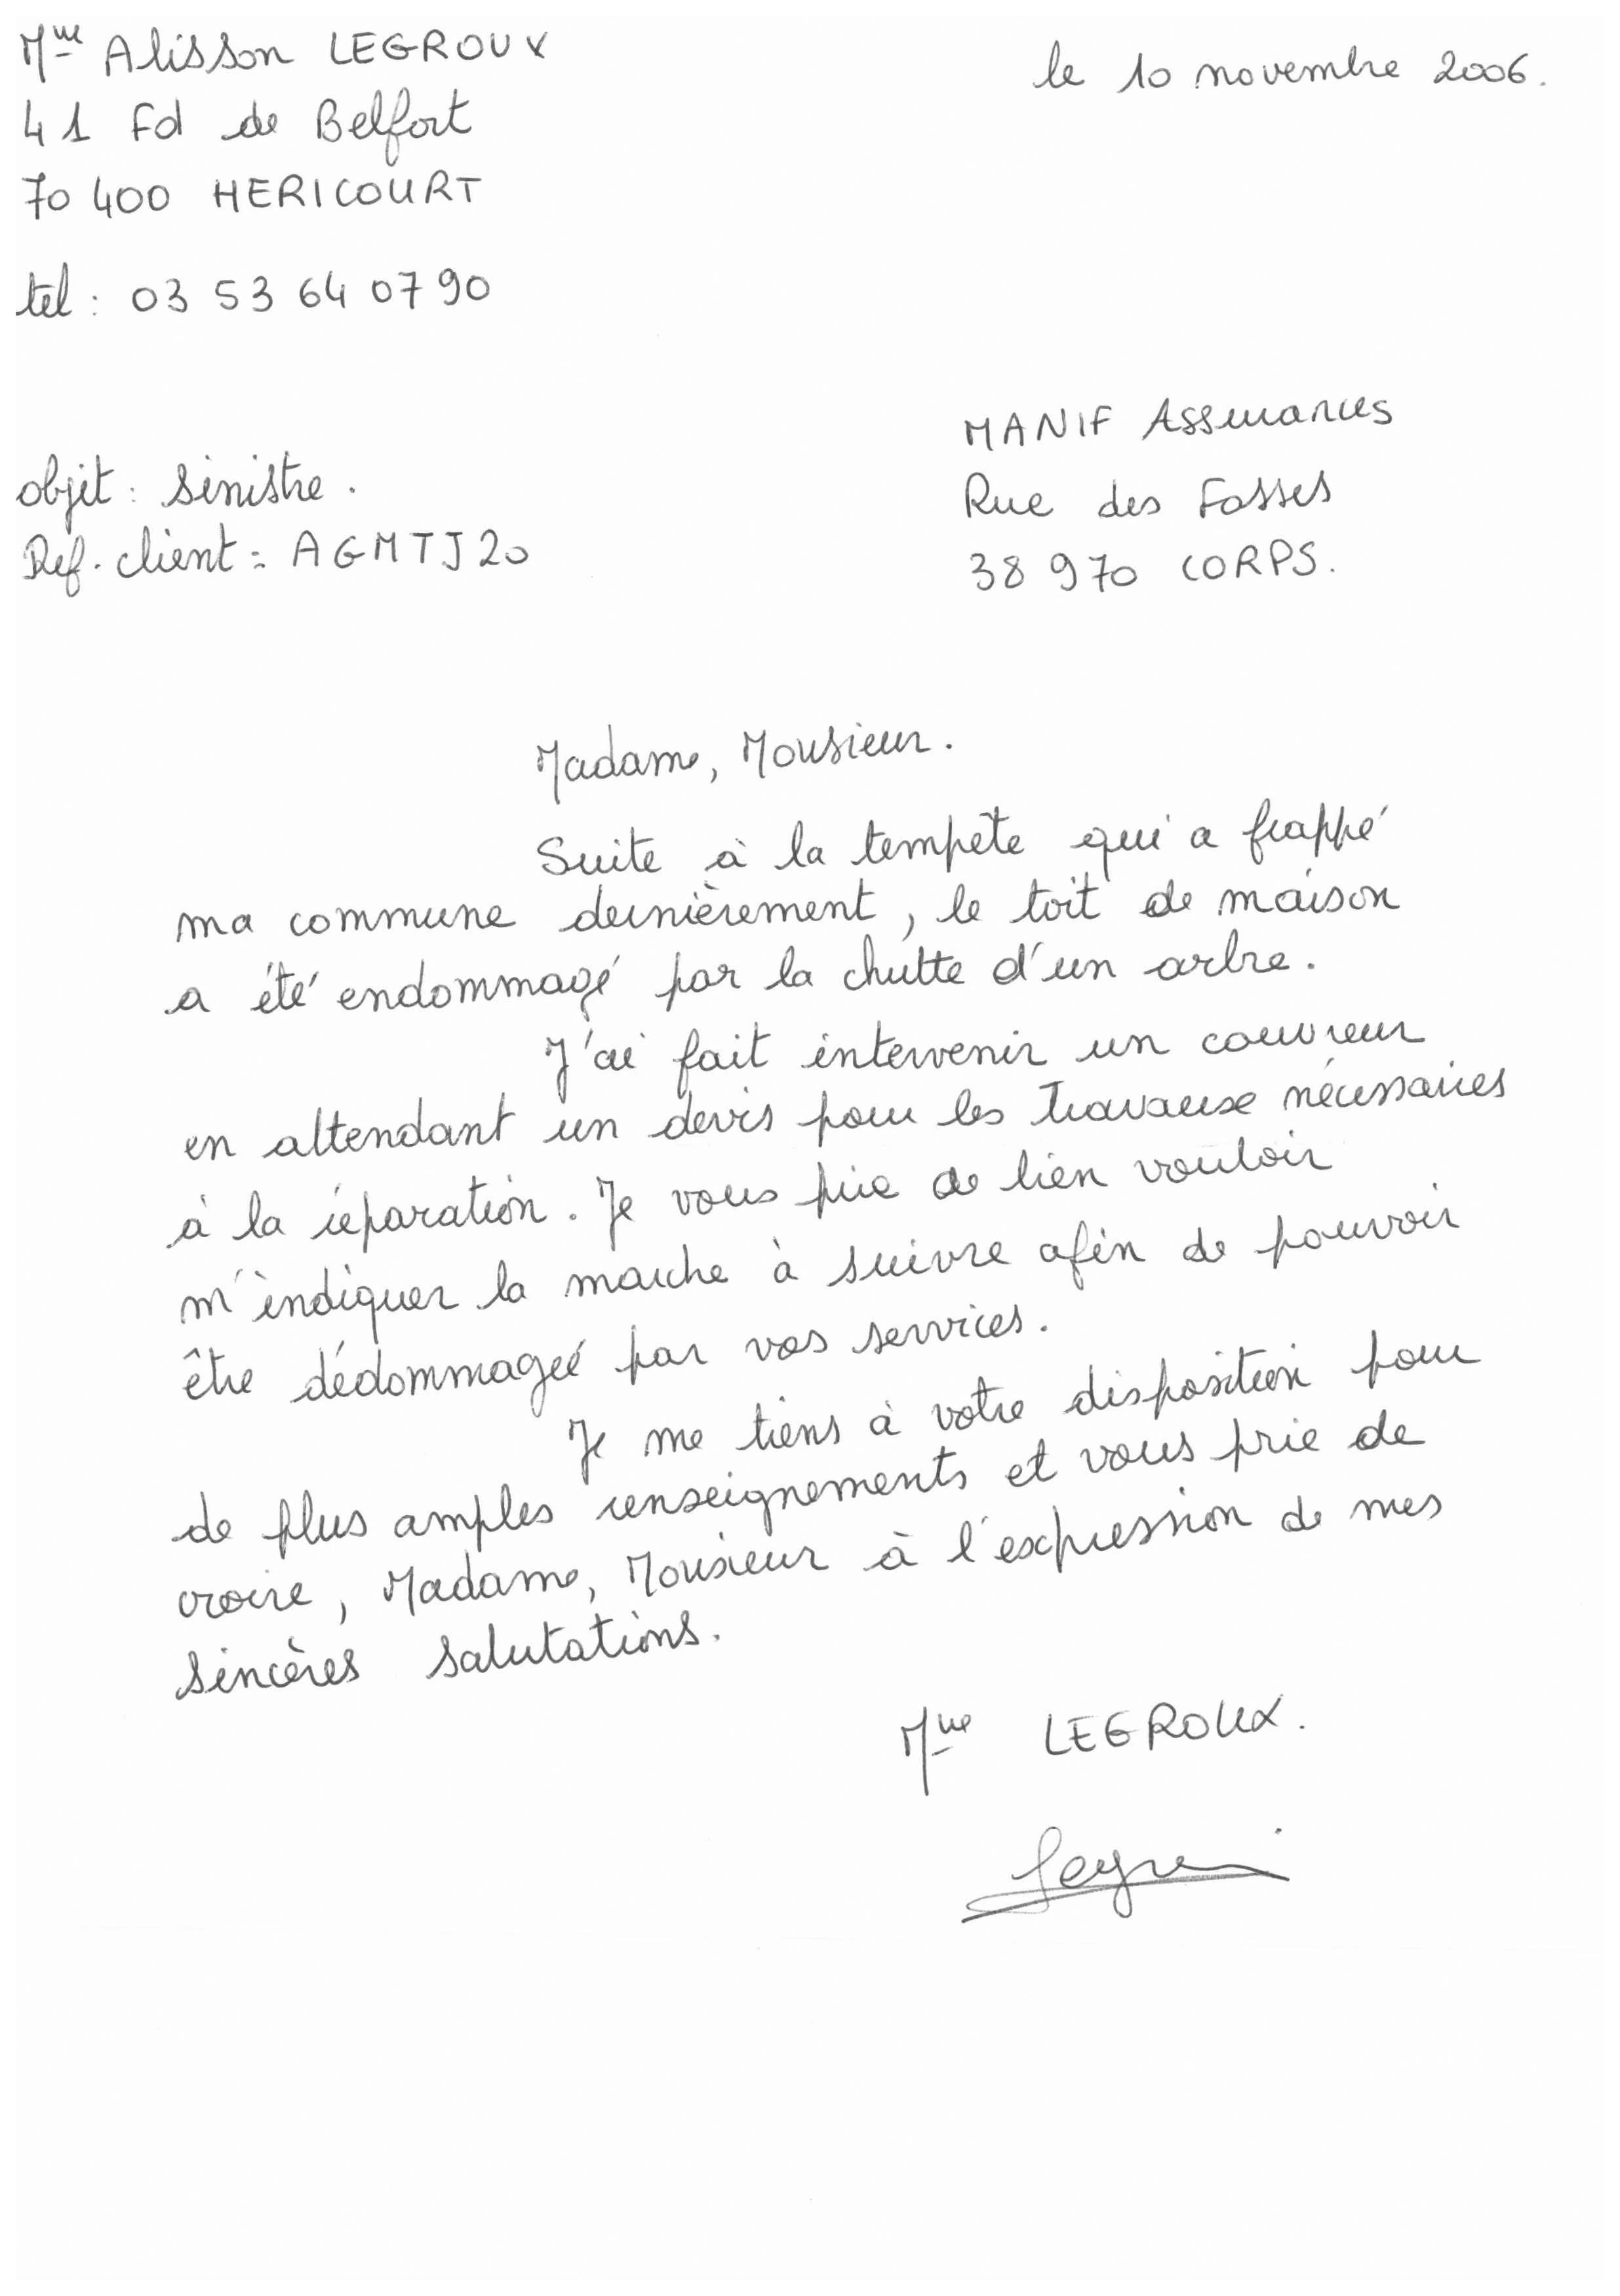 Mme Alisson LEGROUX
le 10 novembre 2006.
41 Fd de Belfort
70 400 HERICOURT
tel : 03 53 64 07 90
MANIF Assurances
Rue des Fosses
38 970 CORPS.
objet : sinistre.
Ref. client : AGMTJ20
Madame, Monsieur.
Suite à la tempête qui a frappé
ma commune dernièrement, le toit de maison
a été endommagé par la chutte d'un arbre.
J'ai fait intervenir un couvreur
en attendant un devis pour les travaux nécessaires
à la réparation. Je vous prie de bien vouloir
m'indiquer la marche à suivre afin de pouvoir
être dédommagée par vos services.
Je me tiens à votre disposition pour
de plus amples renseignements et vous prie de
croire, Madame, Monsieur à l'expression de mes
sincères salutations.
Mme LEGROUX.